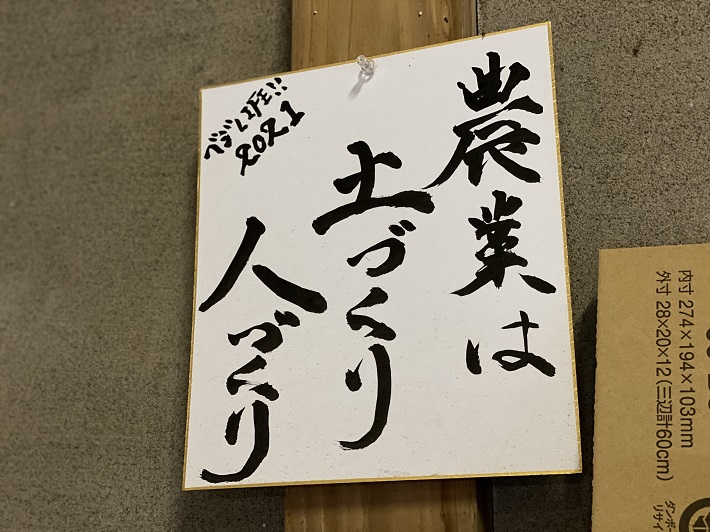 農業は
土づくり
人づくり
2021
内寸 274×194×103mm
外寸 28×20×12(三辺計60cm)
ダンボー
リサイ